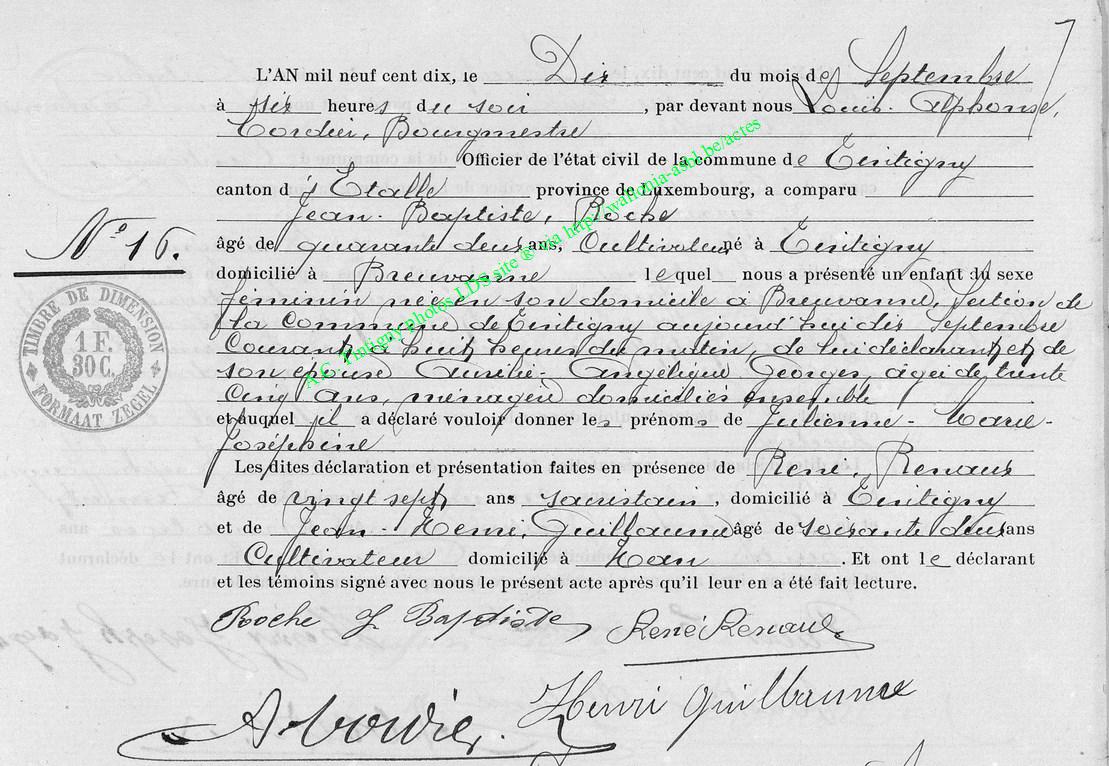 L'AN mil neuf cent dix, le Dix du mois de Septembre
à six heures du soir, par devant nous Louis-Alphonse,
Cordier, Bourgmestre
Officier de l'état civil de la commune de Tintigny
canton d'Etalle province de Luxembourg, a comparu
Jean-Baptiste, Roche
âgé de quarante deux ans, Cultivateur né à Tintigny
N° 16.
domicilié à Breuvanne lequel nous a présenté un enfant du sexe
féminin née en son domicile à Breuvanne, Section de
la Commune de Tintigny aujourd'hui dix Septembre
TIMBRE DE DIMENSION
1 F.
30 C.
FORMAAT ZEGEL
Courant à huit heures du matin, de lui déclarant et de
son épouse Angélique Georges, âgée de trente
Cinq ans, ménagère domiciliés ensemble
et auquel il a déclaré vouloir donner les prénoms de Julienne-Marie-
Joséphine
Les dites déclaration et présentation faites en présence de René, Renaux
âgé de vingt sept ans sacristain, domicilié à Tintigny
et de Jean-Henri, Guillaume âgé de soixante deux ans
Cultivateur domicilié à Han. Et ont le déclarant
et les témoins signé avec nous le présent acte après qu'il leur en a été fait lecture.
Roche J Baptiste
René Renaux
Henri Guillaume
A Cordier.
A.C. Tintigny photos LDS site ® via http://wallonia-asbl.be/actes